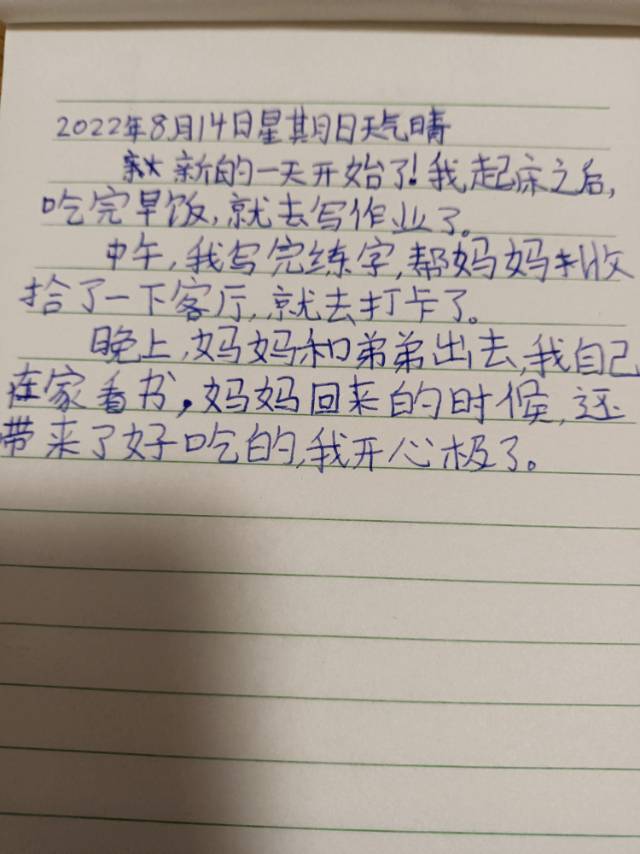 2022年8月14日星期日天气晴
新的一天开始了!我起床之后,
吃完早饭,就去写作业了。
中午,我写完练字,帮妈妈收
拾了一下客厅,就去打卡了。
晚上,妈妈和弟弟出去,我自己
在家看书,妈妈回来的时候,还
带来了好吃的,我开心极了。